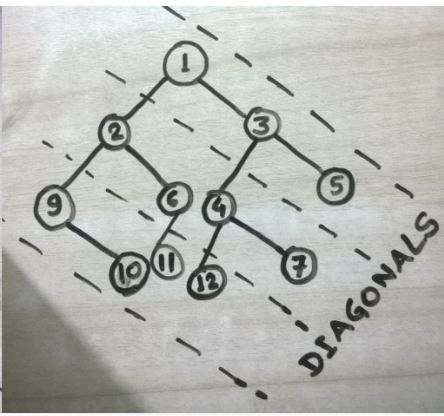 1
2 3
9 6 4 5
10 11 12 7
DIAGONALS